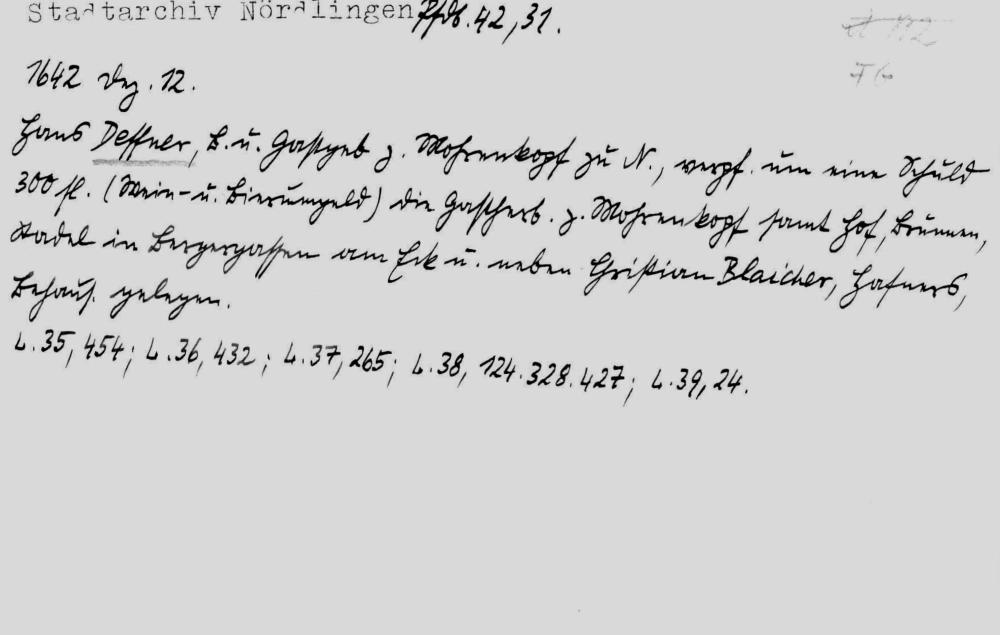 Stadtarchiv Nördlingen Pfdb. 42, 31.
1642 Dez. 12.
Hans Deffner, B. u. Gastgeb z. Mohrenkopf zu N., verpf. um eine Schuld
300 fl. (Wein- u. Bierumgeld) die Gastherb. z. Mohrenkopf samt Hof, Brunnen,
Stadel in Bergergassen am Eck u. neben Christian Blaicher, Hafners,
Behaus. gelegen.
L. 35, 454; L. 36, 432; L. 37, 265; L. 38, 124. 328. 427; L. 39, 24.